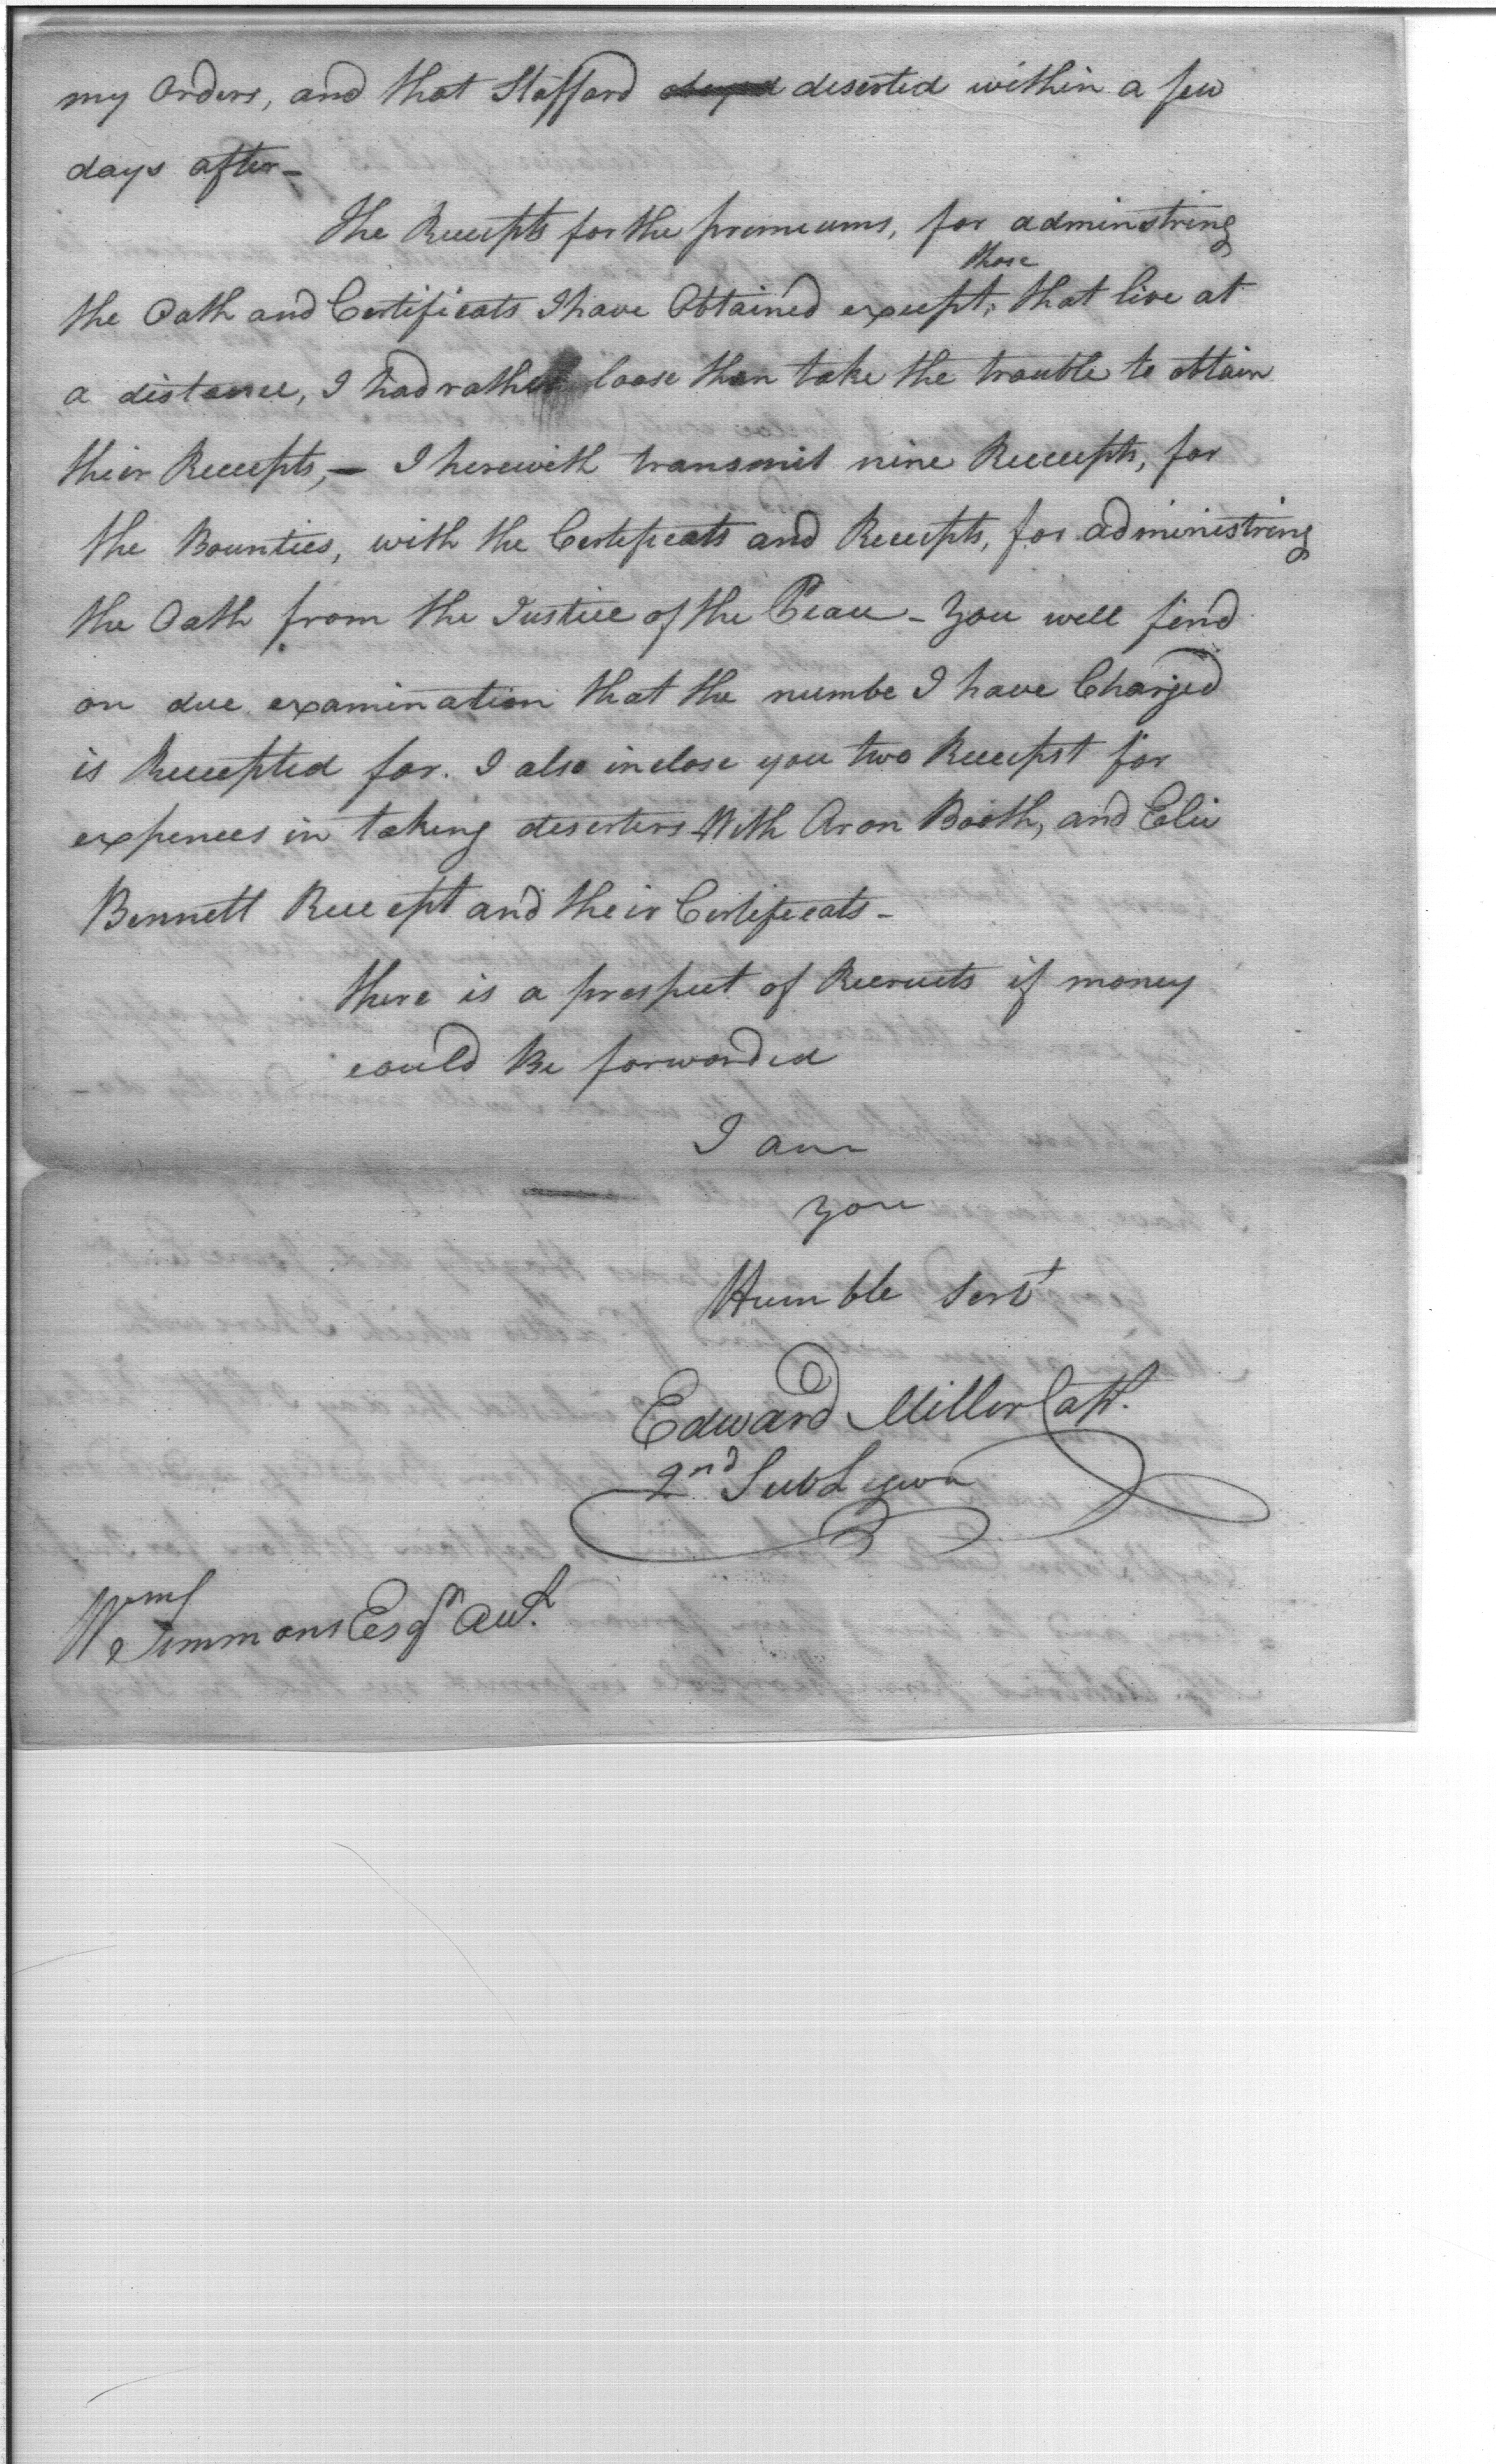 my Orders, and that Stafford deserted within a few
days after-
The Receipts for the premeums, for adminstring
those
the Oath and Certificats I have Obtained except, that live at
a distance, I had rather loose than take the trouble to obtain
their Receepts,- I herewith transmit nine Receepts, for
the Bounties, with the Certificats and Receipts, for administring
the Oath from the Justice of the Peace - You well find
on due examination that the numbe I have Charged
is Receepted for. I also inclose you two Receepst for
expences in taking deserters With Aron Booth, and Elii
Bennett Receept and their Certificats-
there is a prospect of Recruits if money
could Be forwarded
I am
you
Humble Servt
Edward Miller Capt.
2nd Sub Legion
Wm Simmons Esqr Aud.